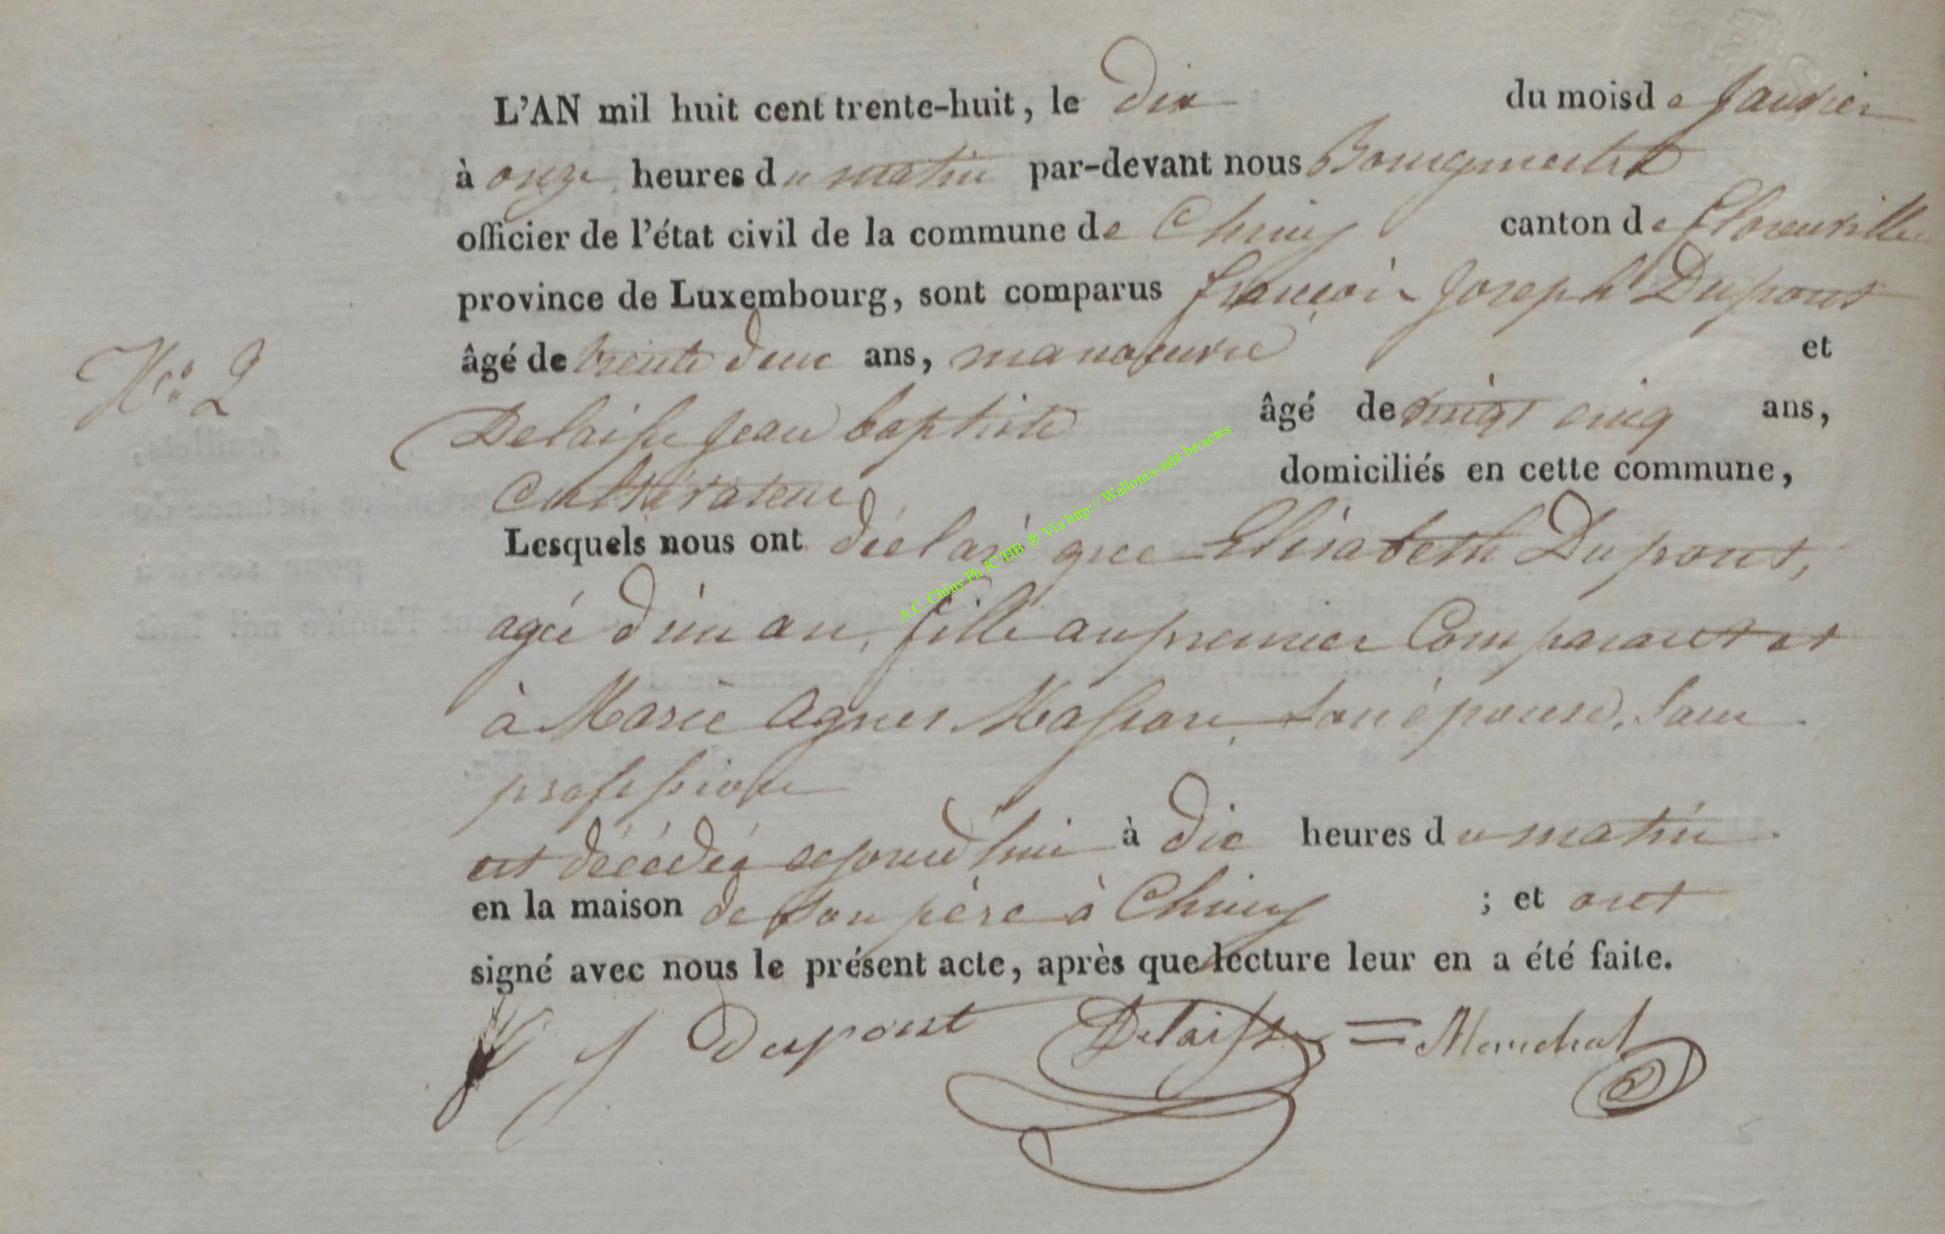 L'AN mil huit cent trente-huit, le dix du mois de Janvier
à onze heures du matin par-devant nous Bourgmestre
officier de l'état civil de la commune de Chiny canton de Florenville
province de Luxembourg, sont comparus françois Joseph Dupont
âgé de trente deux ans, manoeuvre et
No. 2
Delaisse Jean baptiste âgé de vingt cinq ans,
Cultivateur domiciliés en cette commune,
Lesquels nous ont déclaré que Elisabeth Dupont,
agée d'un an, fille au premier Comparant et
à Marie Agnes Masson, son épouse, sans
profession
est décédée cejourd'hui à dix heures du matin
en la maison de son père à Chiny ; et ont
signé avec nous le présent acte, après que lecture leur en a été faite.
f J Dupont Delaisse = Marechal
A.C. Chiny Ph JC HB ® Via http://Wallonia-asbl.be/actes